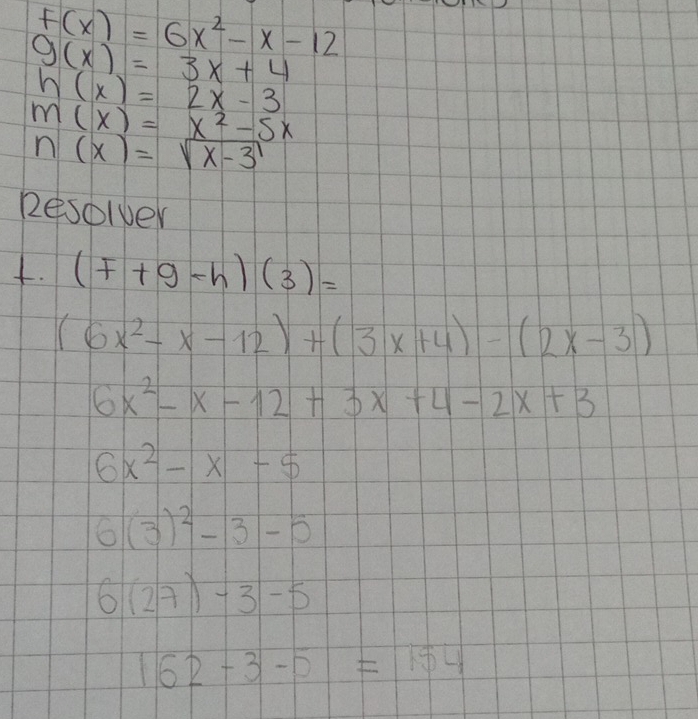 f(x) = 6x² - x - 12
g(x) = 3x + 4
h(x) = 2x - 3
m(x) = x² - 5x
n(x) = √x-3
Resolver
1. (f + g - h) (3) =
(6x² - x - 12) + (3x + 4) - (2x - 3)
6x² - x - 12 + 3x + 4 - 2x + 3
6x² - x - 5
6(3)² - 3 - 5
6(27) - 3 - 5
162 - 3 - 5 = 154